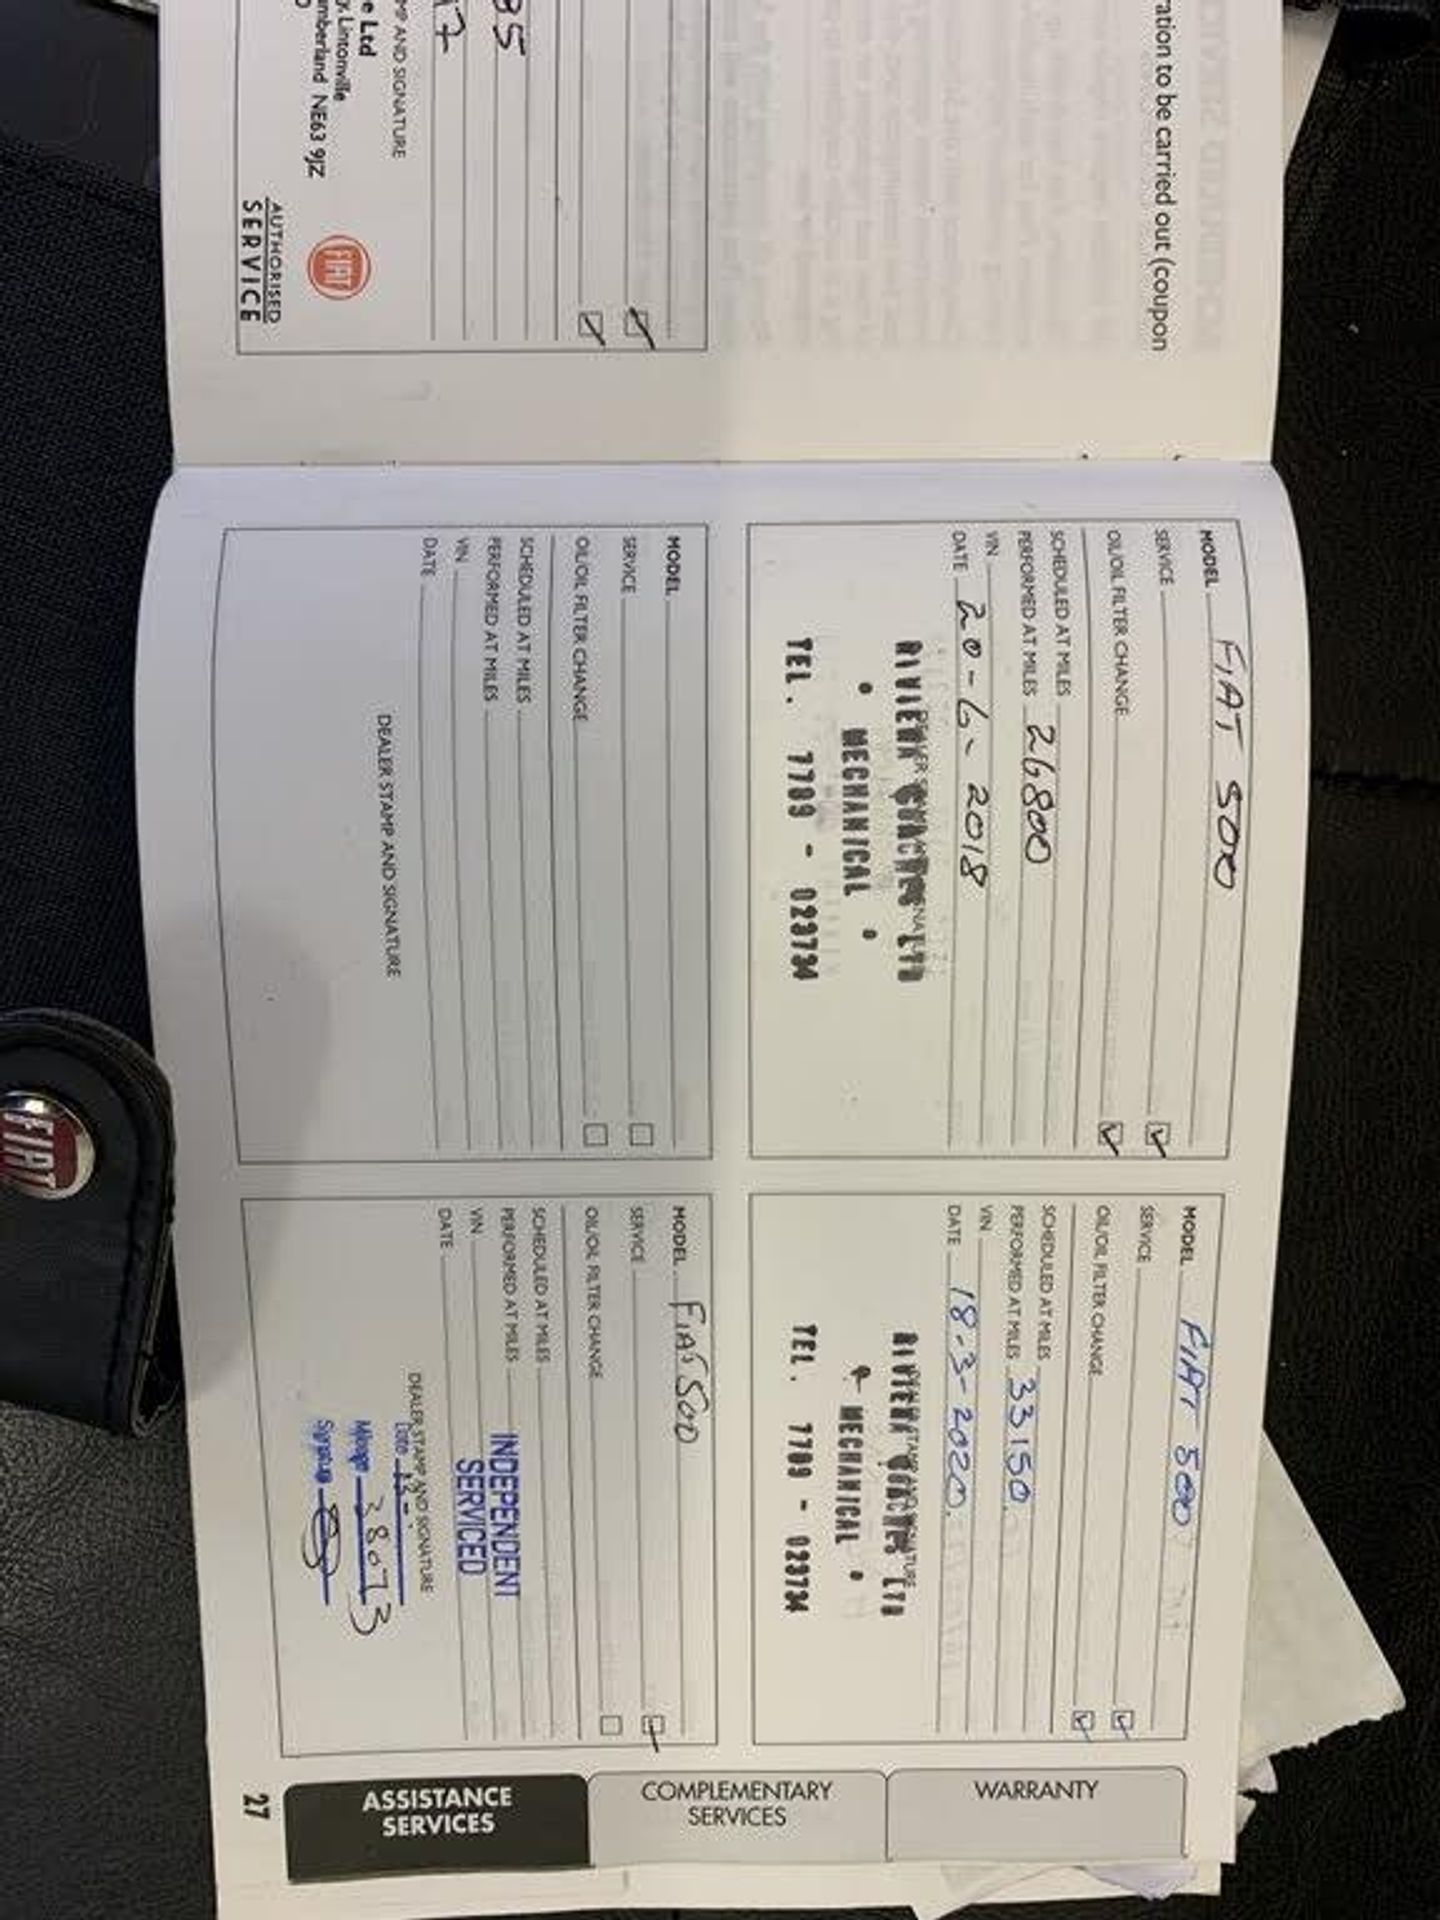 ration to be carried out (coupon
35
47
MP AND SIGNATURE
e Ltd
y, Lintonville
mberland NE63 9JZ
FIAT
AUTHORISED
SERVICE
MODEL FIAT 500
SERVICE
OIL/OIL FILTER CHANGE
SCHEDULED AT MILES
PERFORMED AT MILES 26800
VIN
DATE 20-6-2018
RIVIERA COACHES LTD
• MECHANICAL •
TEL. 7709 - 023734
MODEL FIAT 500
SERVICE
OIL/OIL FILTER CHANGE
SCHEDULED AT MILES
PERFORMED AT MILES 33150.
VIN
DATE 18-3-2020.
RIVIERA COACHES LTD
MECHANICAL •
TEL. 7709 - 023734
MODEL
SERVICE
OIL/OIL FILTER CHANGE
SCHEDULED AT MILES
PERFORMED AT MILES
VIN
DATE
DEALER STAMP AND SIGNATURE
MODEL FIAT 500
SERVICE
OIL/OIL FILTER CHANGE
SCHEDULED AT MILES
PERFORMED AT MILES
VIN
DATE
INDEPENDENT
SERVICED
DEALER STAMP AND SIGNATURE
Date
Mileage 38073
Signature
WARRANTY
COMPLEMENTARY
SERVICES
ASSISTANCE
SERVICES
27
FIAT